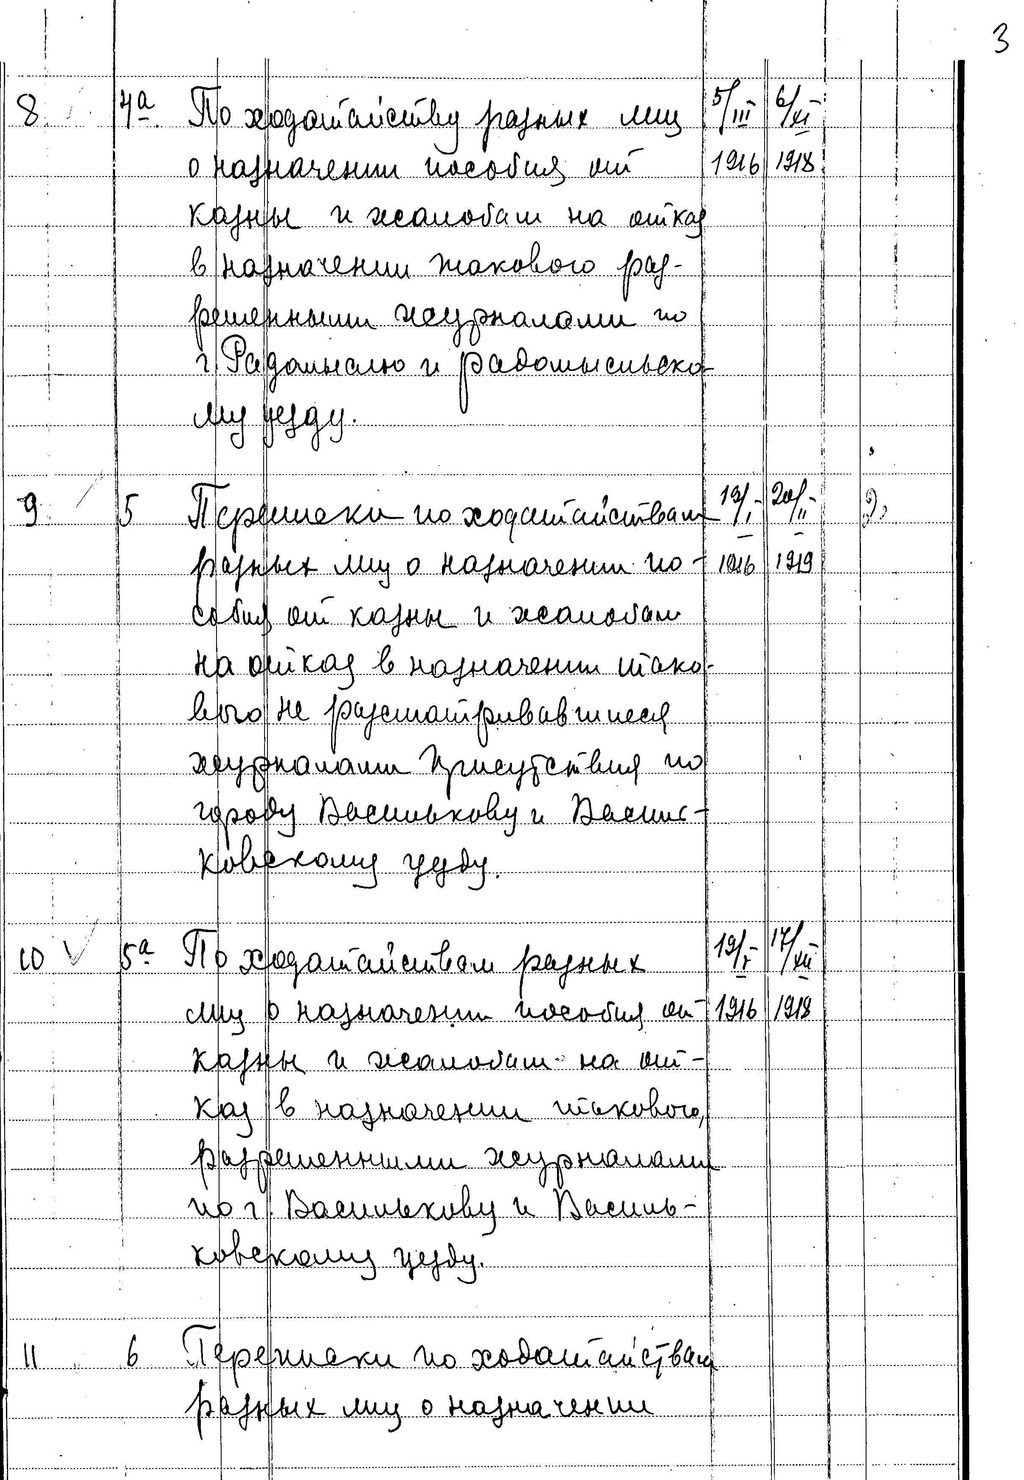 3
8 4а По ходатайству разных лиц 5/III 6/XI
о назначении пособия от 1916 1918
казны и жалобам на отказ
в назначении такового раз-
решенными журналами по
г. Радомыслю и радомысльско
му уезду.
9 5 Переписки по ходатайствам 19/I 20/II
разных лиц о назначении по- 1916 1919
собия от казны и жалобам
на отказ в назначении тако-
вого не разсматривавшиеся
журналами Присутствия по
городу Василькову и Василь-
ковскому уезду.
10 5а По ходатайствам разных 19/V 17/XII
лиц о назначении пособия от 1916 1918
казны и жалобам на от-
каз в назначении такового,
разрешенными журналами
по г. Василькову и Василь-
ковскому уезду.
11 6 Переписки по ходатайствам
разных лиц о назначении